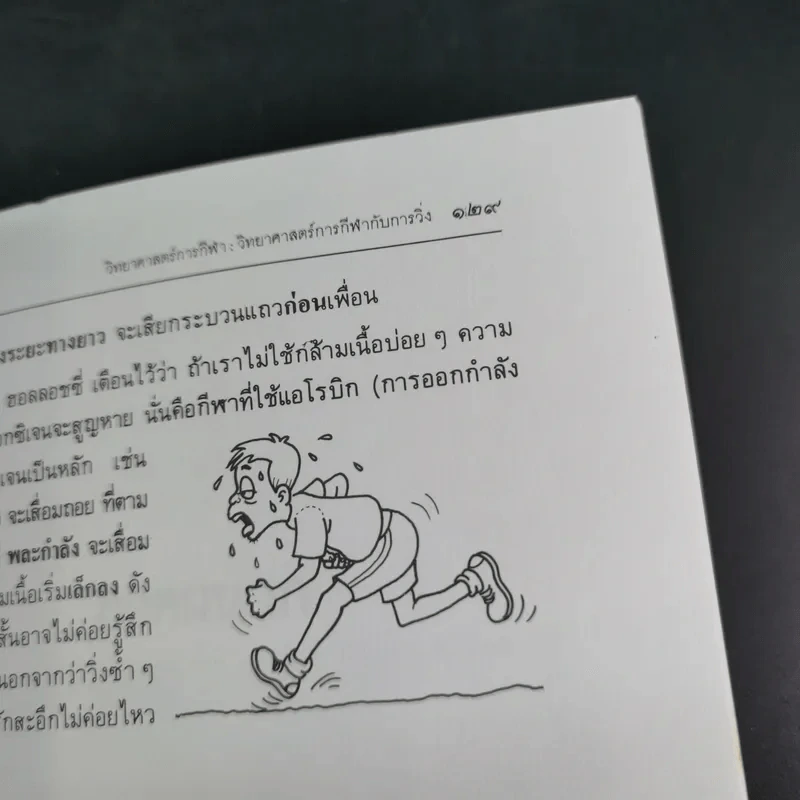 วิทยาศาสตร์การกีฬา : วิทยาศาสตร์การกีฬากับการวิ่ง ๑๒๙
งระยะทางยาว จะเสียกระบวนแถวก่อนเพื่อน
ฮอลลอชซี่ เตือนไว้ว่า ถ้าเราไม่ใช้กล้ามเนื้อบ่อย ๆ ความ
อกซิเจนจะสูญหาย นั่นคือกีฬาที่ใช้แอโรบิก (การออกกำลัง
เจนเป็นหลัก เช่น
จะเสื่อมถอย ที่ตาม
พละกำลัง จะเสื่อม
มเนื้อเริ่มเล็กลง ดัง
สั้นอาจไม่ค่อยรู้สึก
นอกจากว่าวิ่งซ้ำ ๆ
ักสะอึกไม่ค่อยไหว